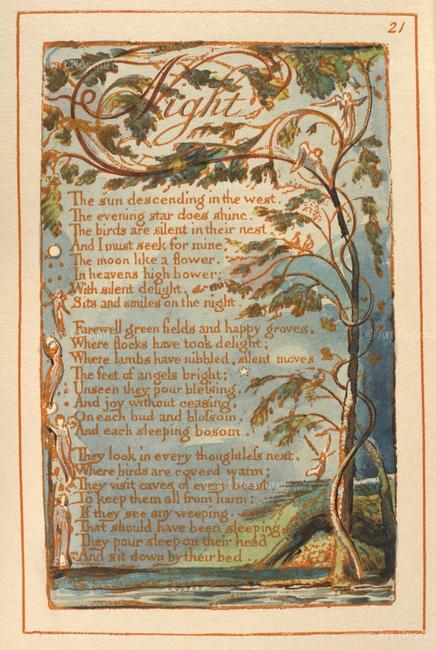 21
Night
The sun descending in the west.
The evening star does shine.
The birds are silent in their nest,
And I must seek for mine,
The moon like a flower.
In heavens high bower;
With silent delight,
Sits and smiles on the night.
Farewell green fields and happy groves,
Where flocks have took delight;
Where lambs have nibbled, silent moves
The feet of angels bright;
Unseen they pour blessing,
And joy without ceasing,
On each bud and blossom,
And each sleeping bosom.
They look in every thoughtless nest,
Where birds are coverd warm;
They visit caves of every beast,
To keep them all from harm:
If they see any weeping,
That should have been sleeping
They pour sleep on their head
And sit down by their bed.